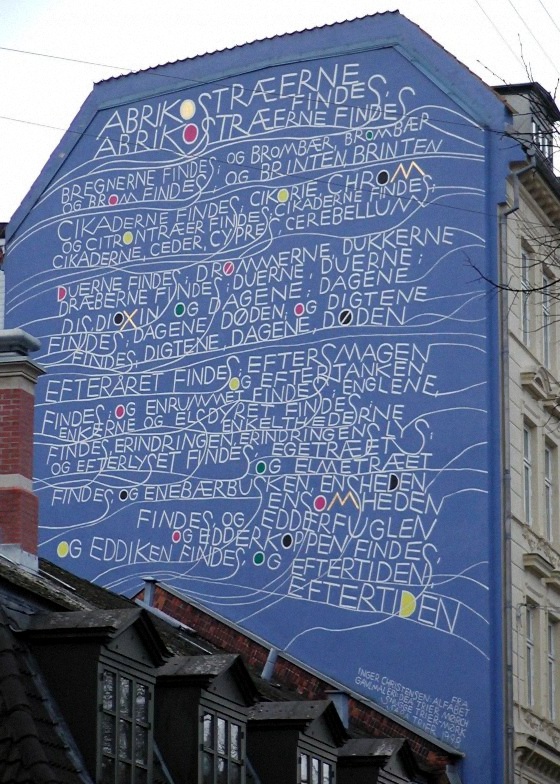 ABRIKOSTRÆERNE
FINDES,
ABRIKOSTRÆERNE FINDES
BREGNERNE FINDES; OG BROMBÆR, BROMBÆR
OG BROM FINDES; OG BRINTEN, BRINTEN
CIKADERNE FINDES; CIKORIE, CHROM,
OG CITRONTRÆER FINDES; CIKADERNE FINDES;
CIKADERNE, CEDER, CYPRES, CEREBELLUM
DUERNE FINDES; DRØMMERNE, DUKKERNE
DRÆBERNE FINDES; DUERNE, DUERNE;
DIS, DIOXIN OG DAGENE; DAGENE
FINDES, DAGENE DØDEN; OG DIGTENE
FINDES, DIGTENE, DAGENE, DØDEN
EFTERÅRET FINDES; EFTERSMAGEN
OG EFTERTANKEN
FINDES; OG ENRUMMET FINDES; ENGLENE,
ENKERNE OG ELSDYRET FINDES;
ENKELTHEDERNE
FINDES, ERINDRINGEN, ERINDRINGENS LYS;
OG EFTERLYSET FINDES, EGETRÆET
OG ELMETRÆET
FINDES, OG ENEBÆRBUSKEN, ENSHEDEN,
ENSOMHEDEN
FINDES, OG EDDERFUGLEN
OG EDDERKOPPEN FINDES,
OG EDDIKEN FINDES, OG
EFTERTIDEN,
EFTERTIDEN
FRA
INGER CHRISTENSEN: ALFABET